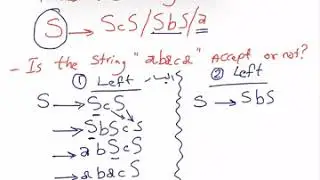 S → ScS / SbS / a
- Is the String "abaca" Accept or not?
① Left ② Left
S → ScS S → SbS
→ SbScS
→ abScS
→ abacS